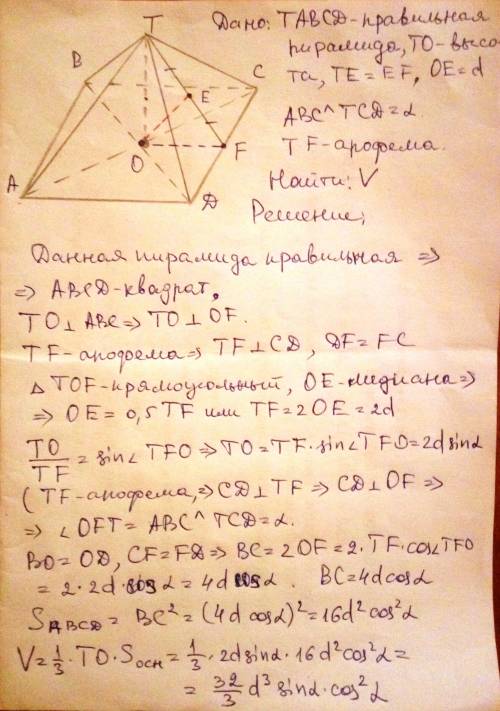 T
B
C
E
O
F
A
D
Дано: TABCD-правильная
пирамида, TO-высо-
та, TE=EF, OE=d
ABC^TCD=α.
TF-апофема.
Найти: V
Решение:
Данная пирамида правильная ⇒
⇒ ABCD-квадрат.
TO⊥ABC⇒ TO⊥OF.
TF-апофема⇒ TF⊥CD, DF=FC
△ TOF-прямоугольный, OE-медиана⇒
⇒ OE=0,5TF или TF=2OE=2d
TO/TF = sin∠TFO⇒TO=TF·sin∠TFO=2dsinα
(TF-апофема,⇒CD⊥TF⇒CD⊥OF⇒
⇒ ∠OFT= ABC^TCD=α.
BO=OD, CF=FD⇒BC=2OF=2·TF·cos∠TFO
=2·2d·cosα=4dcosα. BC=4dcosα
S_ABCD = BC²=(4d cosα)²=16d²cos²α
V=1/3·TO·Sосн=1/3·2dsinα·16d²cos²α=
= 32/3 d³ sinα·cos²α